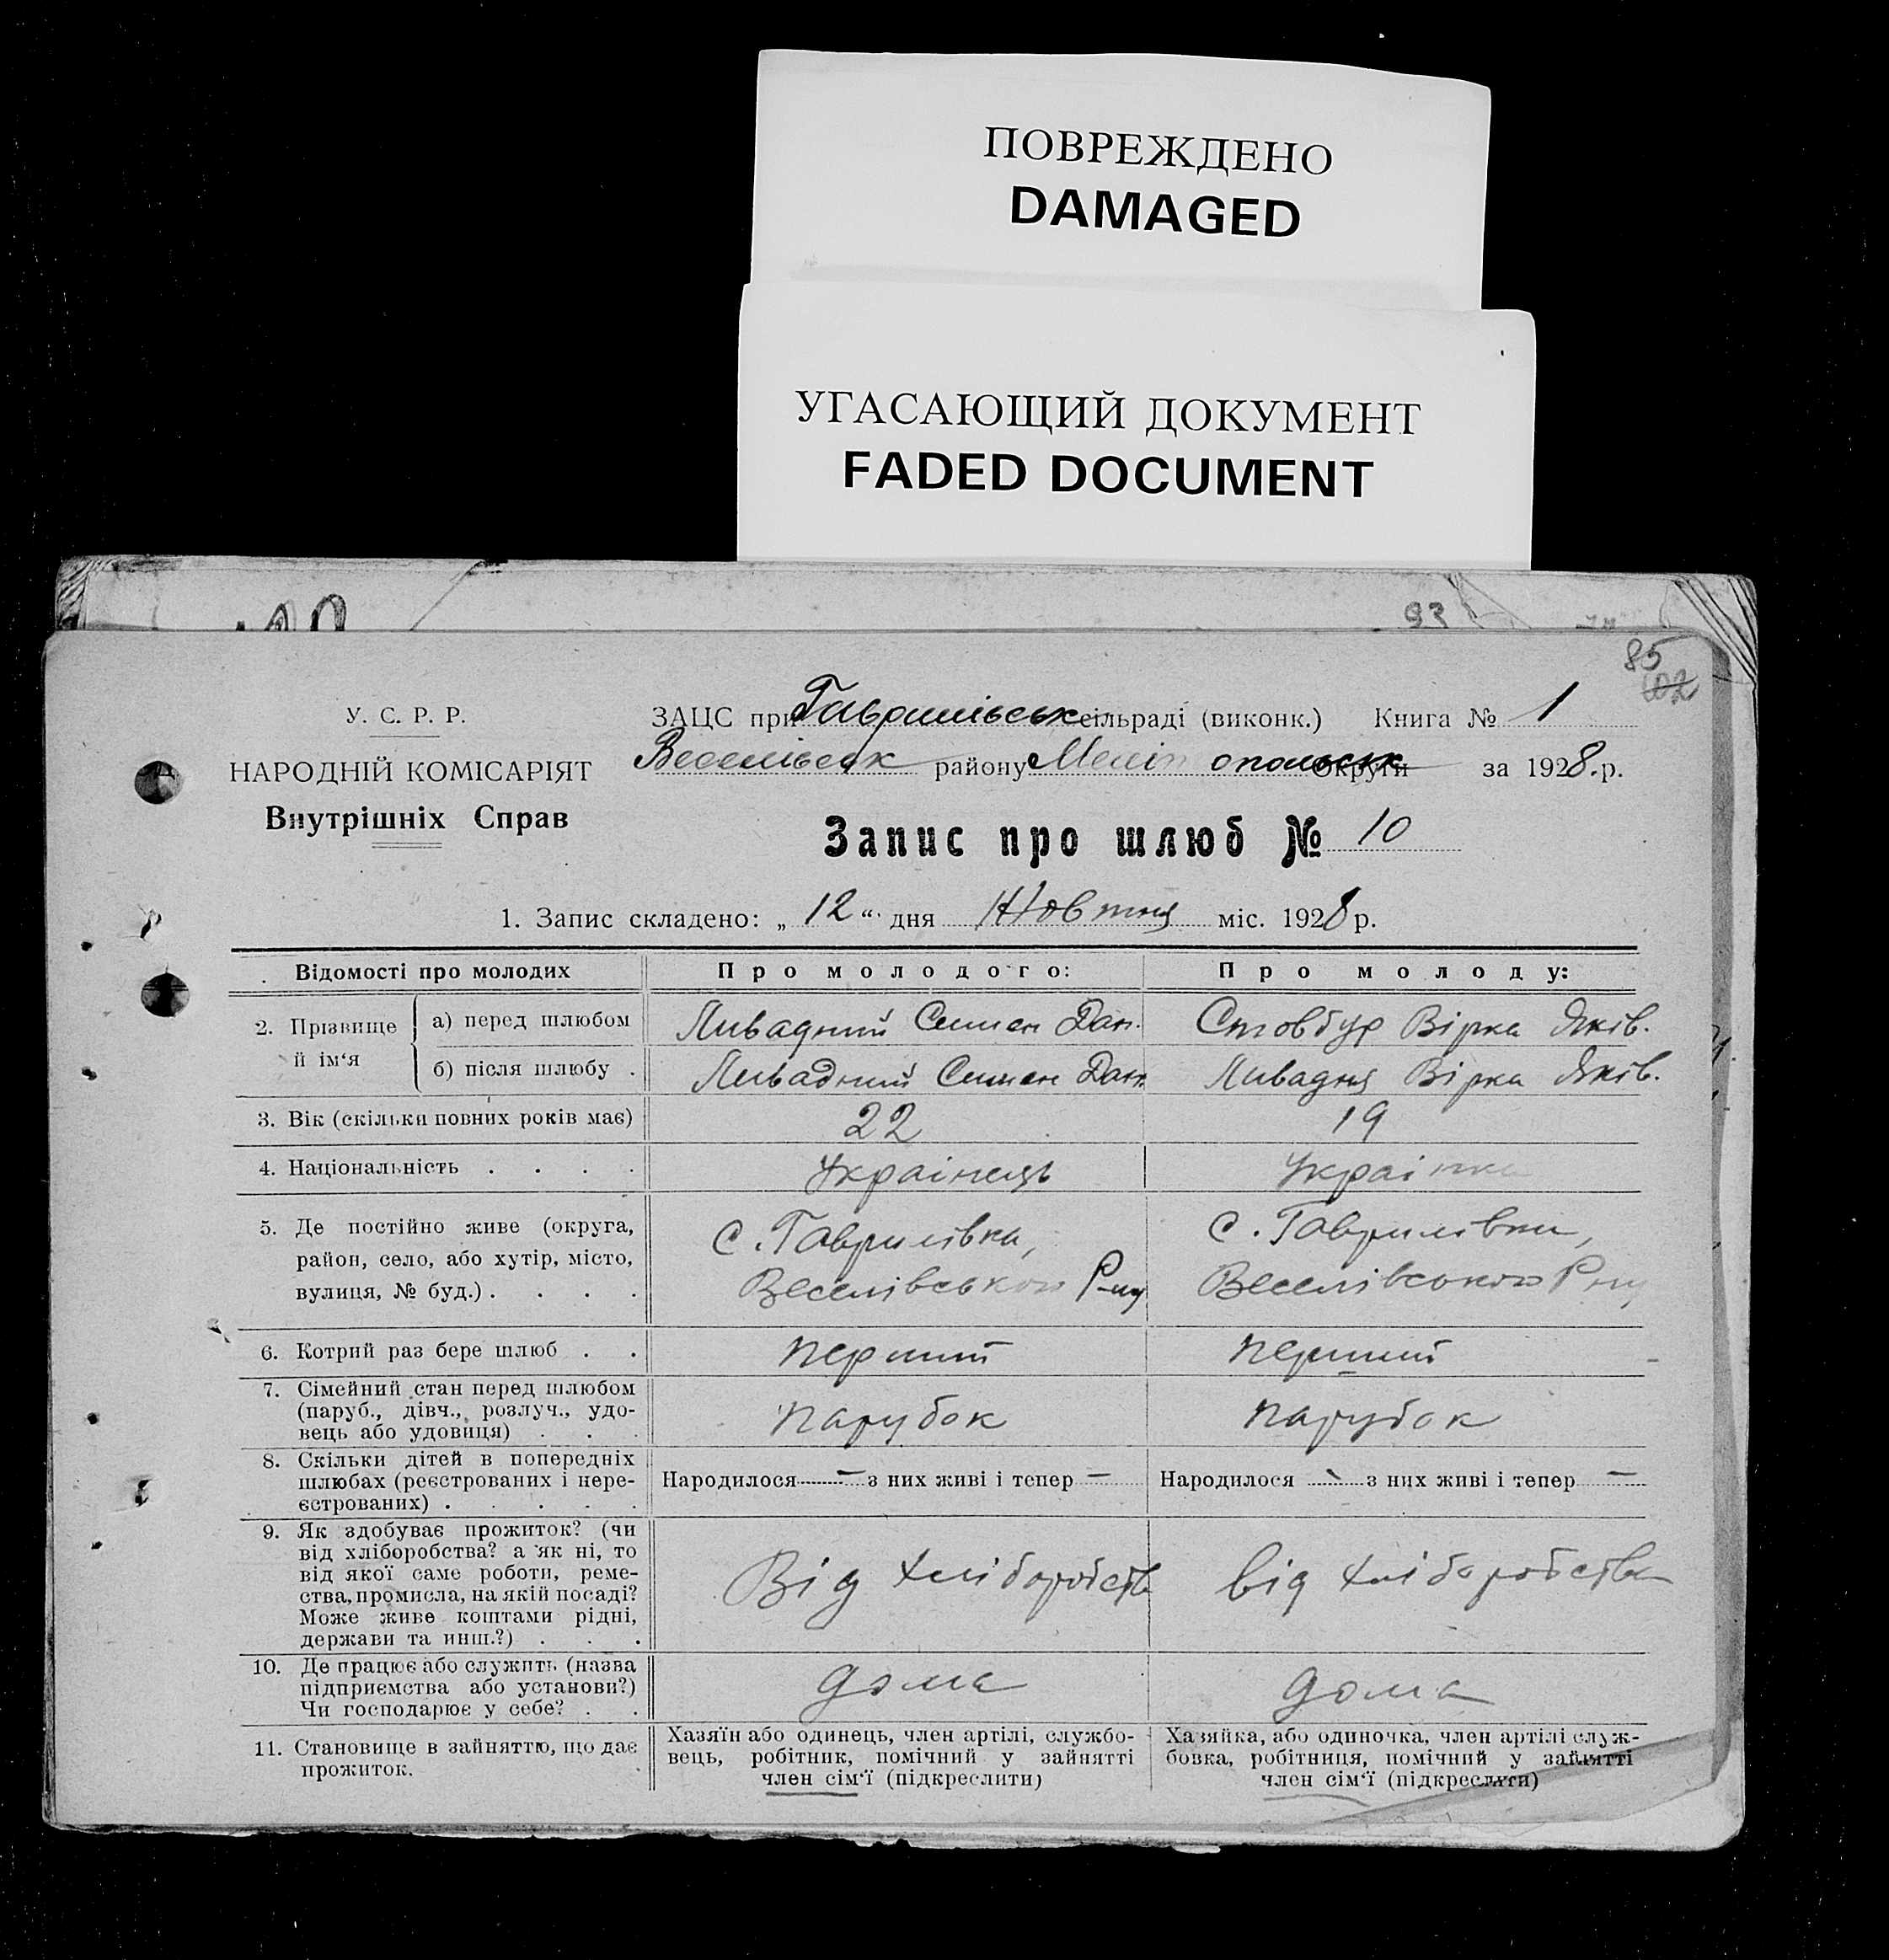 ПОВРЕЖДЕНО
DAMAGED
УГАСАЮЩИЙ ДОКУМЕНТ
FADED DOCUMENT
93
85
102
У. С. Р. Р.
НАРОДНІЙ КОМІСАРІЯТ
Внутрішніх Справ
ЗАЦС при Гаврилівськ сільраді (виконк.) Книга № 1
Веселівськ району Мелітопольськ Округи за 1928.р.
Запис про шлюб № 10
1. Запис складено: „ 12 “ дня Жовтня міс. 1928 р.
Відомості про молодих
Про молодого:
Про молоду:
2. Прізвище й ім‘я
а) перед шлюбом
Ливадний Семен Дан.
Стовбур Вірка Яків.
б) після шлюбу .
Ливадний Семен Дан.
Ливадня Вірка Яків.
3. Вік (скільки повних років має)
22
19
4. Національність . . . .
Українець
Українка
5. Де постійно живе (округа,
район, село, або хутір, місто,
вулиця, № буд.) . . . .
с. Гаврилівка,
Веселівського Р-ну
с. Гаврилівки,
Веселівського Р-ну
6. Котрий раз бере шлюб . .
перший
перший
7. Сімейний стан перед шлюбом
(паруб., дівч., розлуч., удо-
вець або удовиця) . . .
парубок
парубок
8. Скільки дітей в попередніх
шлюбах (реєстрованих і нере-
єстрованих) . . . . .
Народилося — з них живі і тепер —
Народилося — з них живі і тепер —
9. Як здобуває прожиток? (чи
від хліборобства? а як ні, то
від якої саме роботи, реме-
ства, промисла, на якій посаді?
Може живе коштами рідні,
держави та инш.?) . . .
Від хліборобств
від хліборобства
10. Де працює або служить (назва
підприємства або установи?)
Чи господарює у себе? . .
дома
дома
11. Становище в зайняттю, що дає
прожиток.
Хазяїн або одинець, член артілі, службо-
вець, робітник, помічний у зайнятті
член сім‘ї (підкреслити)
Хазяйка, або одиночка, член артілі служ-
бовка, робітниця, помічний у зайнятті
член сім‘ї (підкреслити)